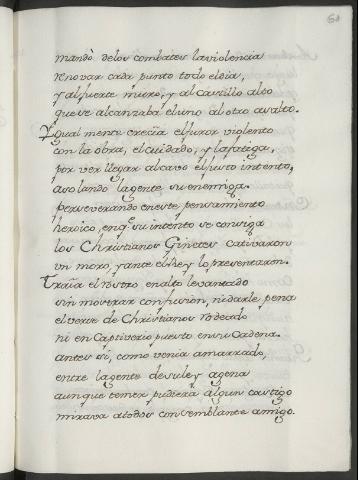 60
mandò delos combates la violencia
Renovar cada punto todo el dia,
y al fuerte muro, y al Castillo alto
que se alcanzaba el uno al otro asalto.
Ygual mente crecia el furor violento
con la obra, el cuidado, y la fatiga,
por ver llegar al cavo el justo intento,
asolando la gente su enemiga.
perseverando en este pensamiento
heroico, en q.e su intento se consiga
los Christianos Ginetes cativaron
un moro, y ante el Rey lo presentaron.
Traîa el rostro en alto levantado
sin mostrar confusion, ni darle pena
el verse de Christianos Rodeado
ni en Captiverio puesto en su Cadena.
antes si, como venia amarrado,
entre la gente de su ley agena
aunque temer pudiera algun castigo
mirava a todos con semblante amigo.